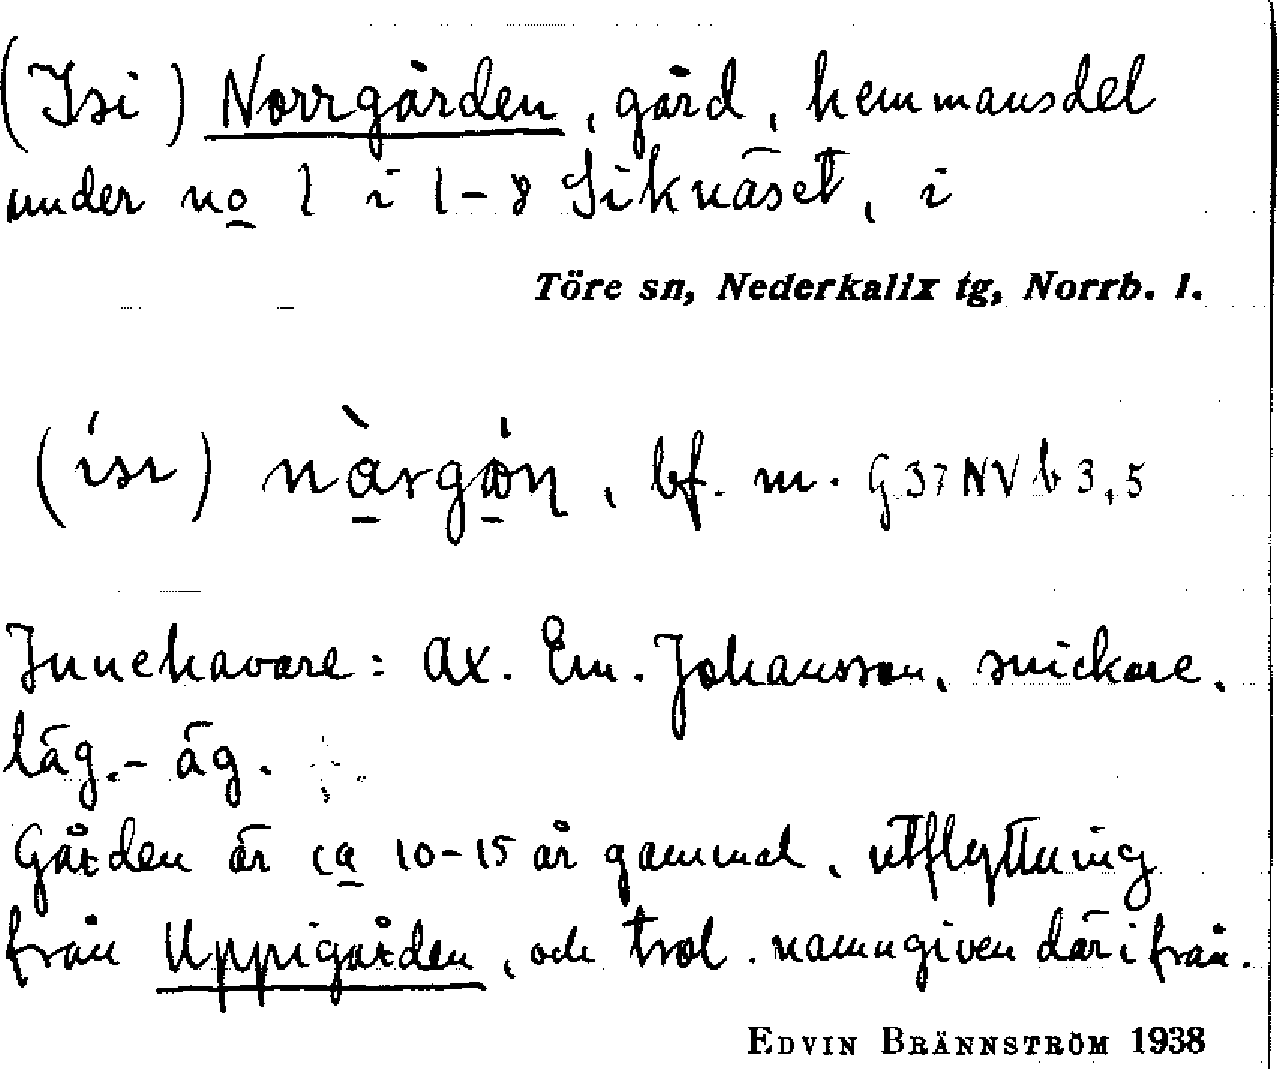 (Isi) Norrgården, gård, hemmansdel
under no 1 i 1-8 Siknäset, i
Töre sn, Nederkalix tg, Norrb. l.
(ísı) nàrgán, bf. m. G 37 NV b 3,5
Innehavare: Ax. Em. Johansson, snickare.
läg.- äg.
Gården är ca 10-15 år gammal, utflyttning
från Uppigården, och trol. namngiven därifrån.
EDVIN BRÄNNSTRÖM 1938